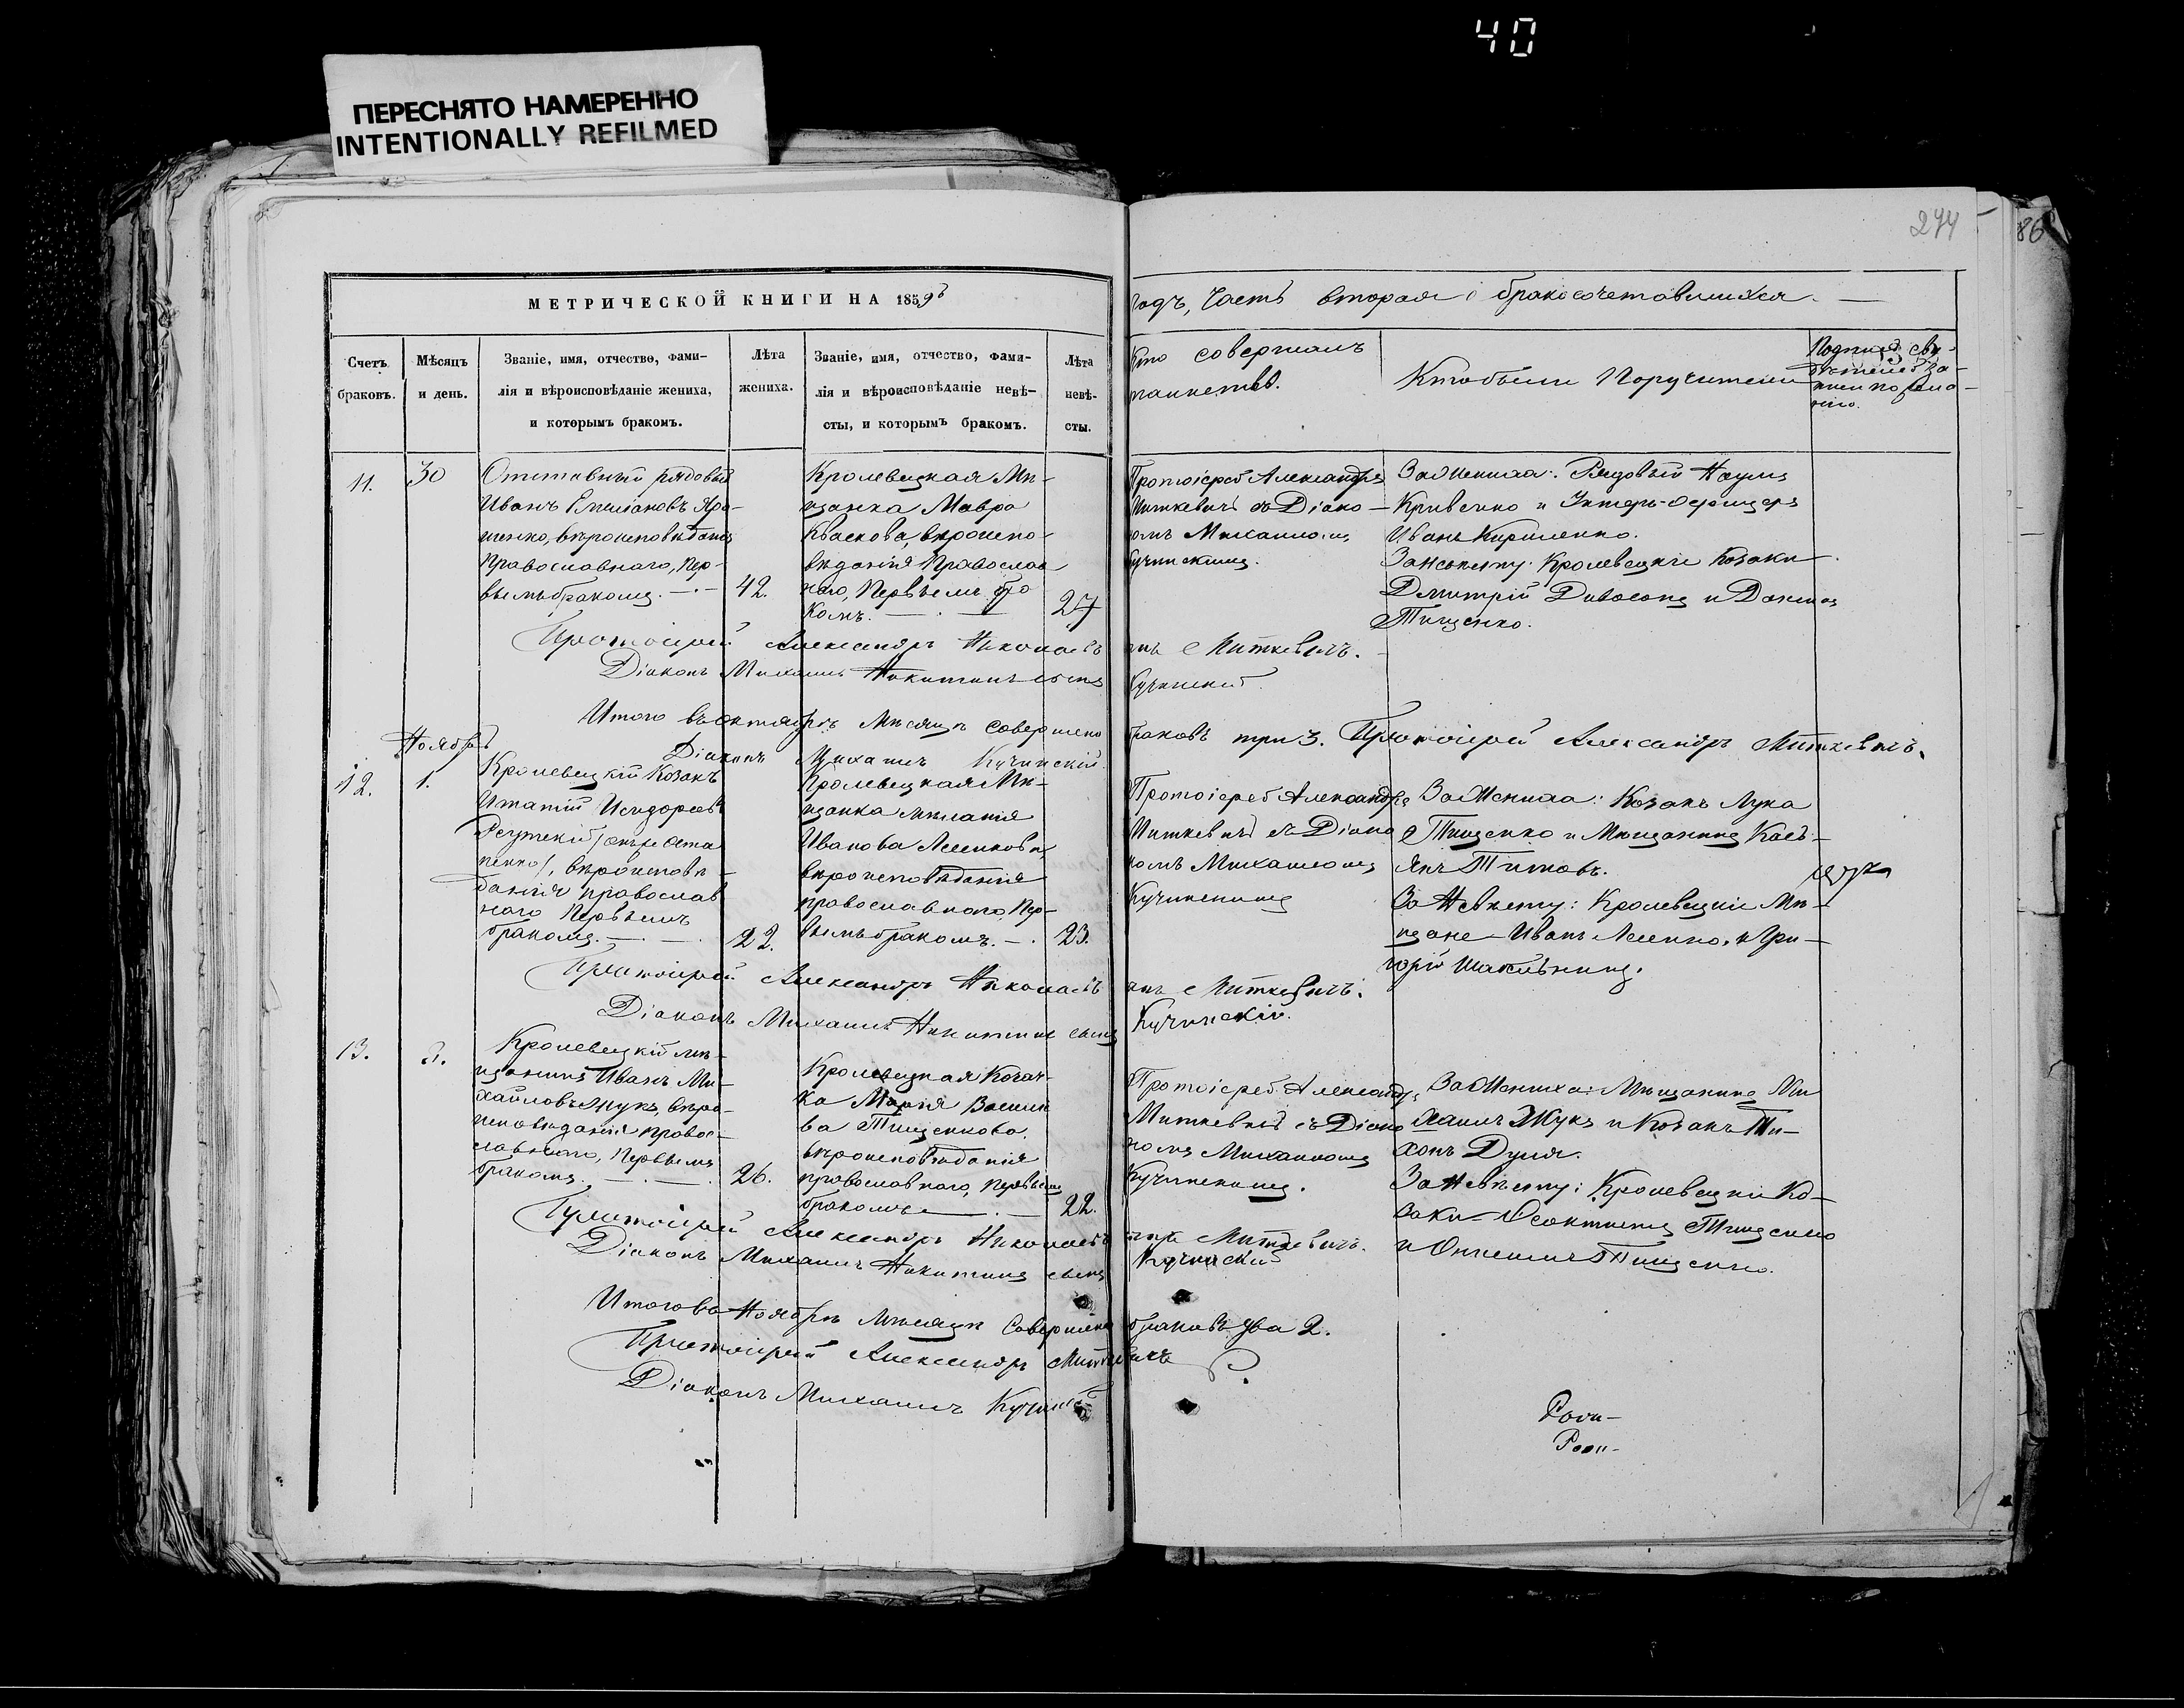 40
ПЕРЕСНЯТО НАМЕРЕННО
INTENTIONALLY REFILMED
274
86
МЕТРИЧЕСКОЙ КНИГИ НА 1859й
годъ, Часть вторая о бракосочетавшихся.
Счетъ браковъ.
Мѣсяцъ и день.
Званіе, имя, отчество, фами-
лія и вѣроисповѣданіе жениха,
и которымъ бракомъ.
Лѣта
жениха.
Званіе, имя, отчество, фами-
лія и вѣроисповѣданіе невѣ-
сты, и которымъ бракомъ.
Лѣта
невѣ-
сты.
Кто совершалъ
таинство.
Кто были Поручители
11.
30
Отставный рядовый
Иванъ Емельяновъ Яро-
шенко, вѣроисповѣданія
Православнаго, Пер-
вымъ бракомъ.
42.
Кролевецкая Мѣ-
щанка Мавра
Кваскова, вѣроиспо-
вѣданія Православ
наго, Первымъ бра
комъ.
27
Протоіерей Александръ
Миткевичъ съ Діако-
номъ Михаиломъ
Кучинскимъ.
За Жениха: Рядовый Наумъ
Кривенко и Унтеръ-офицеръ
Иванъ Кириленко.
За невѣсту: Кролевецкіе Козаки
Дмитрій и
Тищенко.
Протоіерей Александръ Николаевъ
сынъ Миткевичъ.
Діаконъ Михаилъ Никитинъ сынъ
Кучинскій.
Итого въ октябрѣ мѣсяцѣ совершено
браковъ три 3. Протоіерей Александръ Миткевичъ.
Діаконъ Михаилъ Кучинскій.
Ноябрь
12.
1.
Кролевецкій Козакъ
Игнатій Исидоровъ
вѣроисповѣ-
данія православ
наго Первымъ
бракомъ.
22.
Кролевецкая Мѣ-
щанка Меланія
Иванова
вѣроисповѣданія
православнаго, Пер-
вымъ бракомъ.
23.
Протоіерей Александръ
Миткевичъ съ Діако
номъ Михаиломъ
Кучинскимъ
За Жениха: Козакъ Лука
Тищенко и Мѣщанинъ Касъ-
янъ Титовъ.
За Невѣсту: Кролевецкіе Мѣ-
щане Иванъ и Гри-
горій
Протоіерей Александръ Николаевъ
сынъ Миткевичъ.
Діаконъ Михаилъ Никитинъ сынъ
Кучинскій.
13.
Кролевецкій мѣ-
щанинъ Иванъ Ми-
хайловъ Жукъ, вѣро-
исповѣданія правос-
лавнаго, Первымъ
бракомъ.
26.
Кролевецкая Козач-
ка Марія Василі
ва Тищенкова
вѣроисповѣданія
православнаго, Первымъ
бракомъ
22.
Протоіерей Александръ
Миткевичъ съ Діако
номъ Михаиломъ
Кучинскимъ.
За Жениха: Мѣщанинъ Ми
хаилъ Жукъ и Козакъ Ти-
хонъ Дуля.
За Невѣсту: Кролевецкіе Ко-
заки Феоктистъ Тищенко
и Онисимъ Тищенко.
Протоіерей Александръ Николаевъ
сынъ Миткевичъ.
Діаконъ Михаилъ Никитинъ сынъ
Кучинскій
Итого въ Ноябрѣ мѣсяцѣ Совершено
браковъ два 2.
Протоіерей Александръ Миткевичъ
Діаконъ Михаилъ Кучинскій